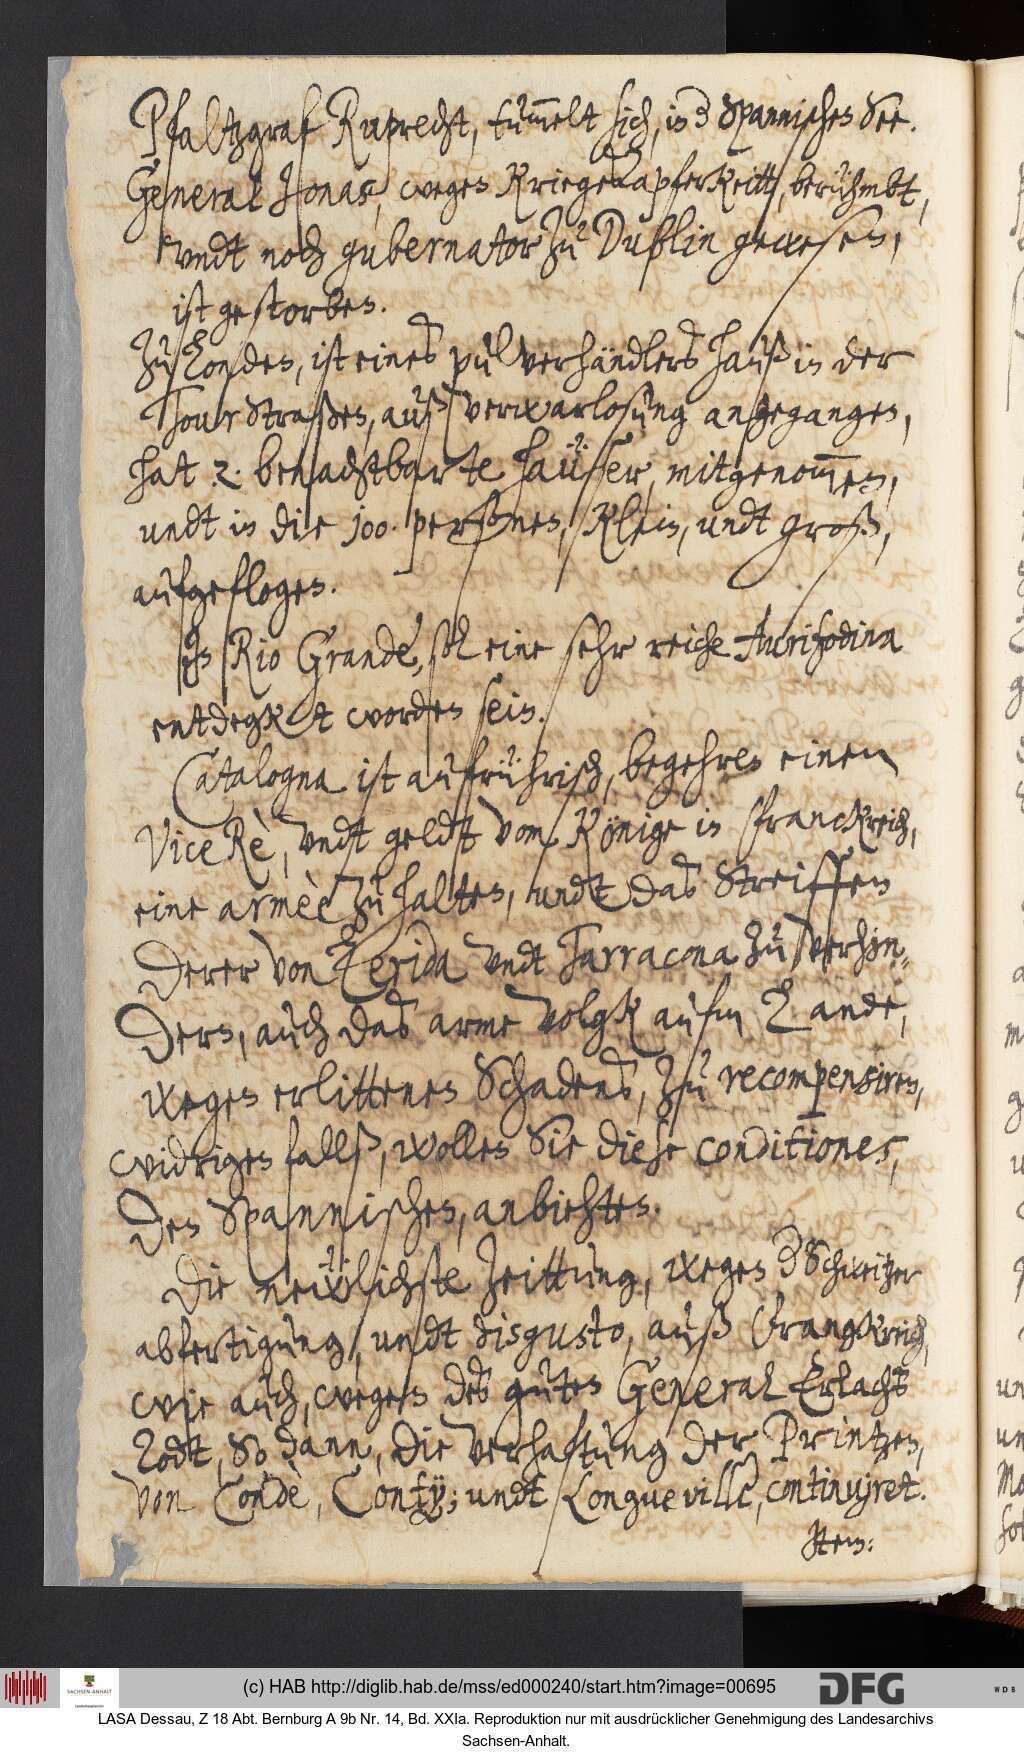 Pfaltzgraf Ruprecht, tummelt sich, in der Spannischen See.
General Jonas, wegen KriegesTapferkeitt, berühmbt,
undt noch gubernator zu Dublin gewesen,
ist gestorben.
Zu Londen, ist eines pulverhändlers Hauß in der
Tour Straßen, auß verwarlosung angegangen,
hat 2. benachtbarte Häuser, mitgenommen,
undt in die 100. personen, Klein, undt groß,
aufgeflogen.
In Rio Grande, sol eine sehr reiche Aurifodina
entdegkt worden sein.
Catalogna ist aufrührisch, begehren einen
Vice Rè, undt geldt vom Könige in Franckreich,
eine armèe zu halten, undt das Streiffen
derer von Lerida undt Tarracona zu verhin-
dern, auch das arme volgk aufm Lande,
wegen erlittenen Schadens, zu recompensiren,
widrigen falls, wollen Sie diese conditiones,
den Spannischen, anbiehten.
Die neẅlichste Zeittung, wegen der Schweitzer
abfertigung, undt disgusto, auß Frangkreich,
wie auch, wegen des guten General Erlachs
Todt, So dann, die verhaftung der Printzen,
von Condè, Contÿ; undt Longueville, continuiret.
Item:
(c) HAB http://diglib.hab.de/mss/ed000240/start.htm?image=00695
SACHSEN-ANHALT
DFG
WDB
LASA Dessau, Z 18 Abt. Bernburg A 9b Nr. 14, Bd. XXIa. Reproduktion nur mit ausdrücklicher Genehmigung des Landesarchivs
Sachsen-Anhalt.